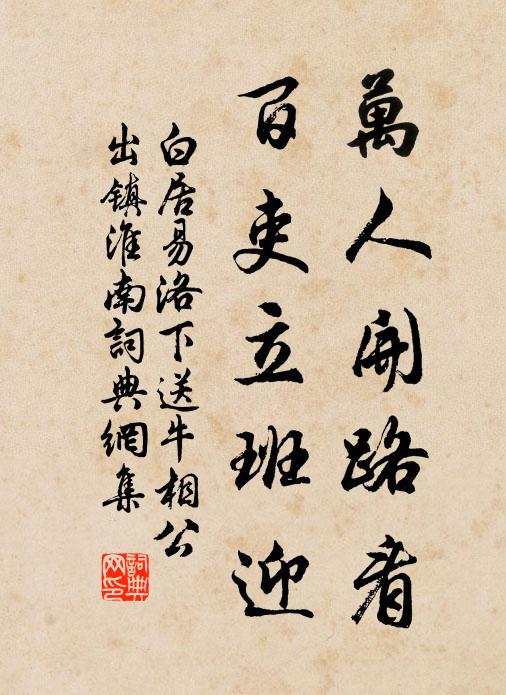 萬人開路看
百吏立班迎
白居易洛下送牛相公
出镇淮南詞典網集
詞典
网印